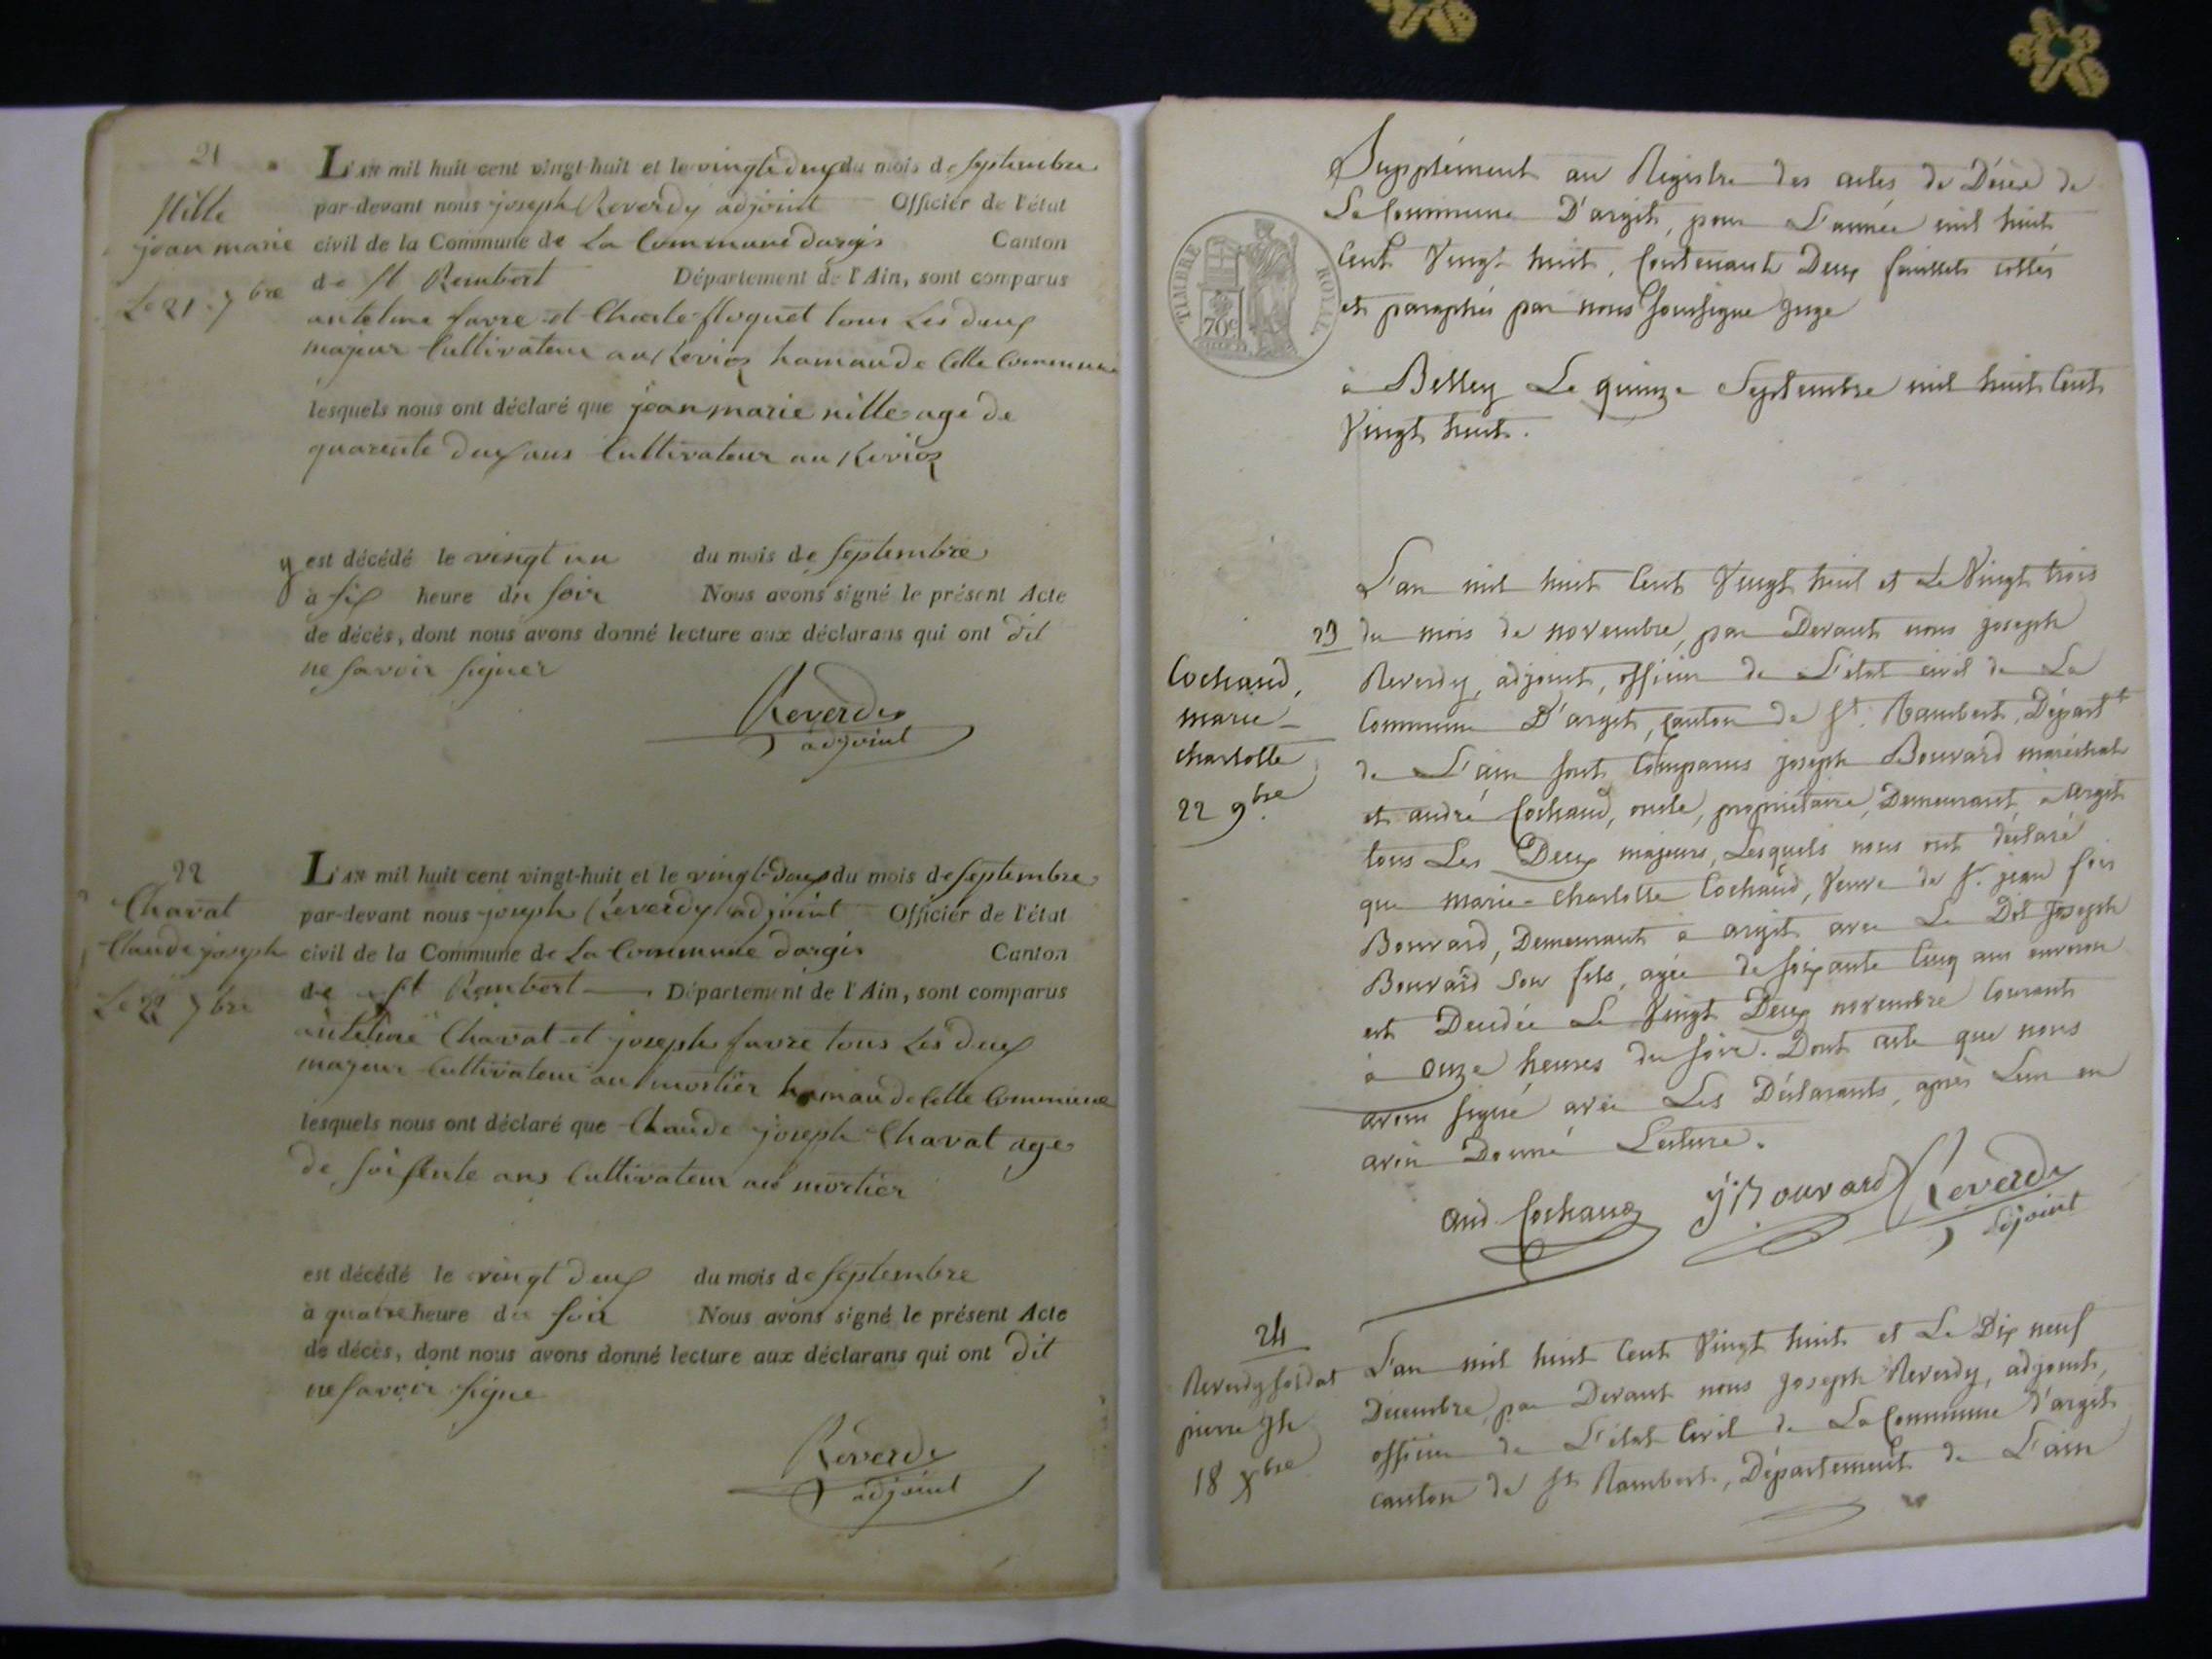 21
Nille
jean marie
Le 21 7bre
L'AN mil huit cent vingt-huit et le vingt deux du mois de septembre
par-devant nous joseph Reverdy adjoint Officier de l'état
civil de la Commune de La Commune dargis Canton
de St Rembert Département de l'Ain, sont comparus
anteline favre et Charle floquet tous Les deux
majeur Cultivateur au ReviOz hamau de Cette Commune
lesquels nous ont déclaré que jean marie nille age de
quarente deux ans Cultivateur au
y est décédé le vingt un du mois de septembre
à six heure du soir Nous avons signé le présent Acte
de décès, dont nous avons donné lecture aux déclarans qui ont dit
ne savoir signer
Reverdy
adjoint
22
Chavat
Claude joseph
Le 22 7bre
L'AN mil huit cent vingt-huit et le vingt-deux du mois de septembre
par-devant nous joseph Reverdy adjoint Officier de l'état
civil de la Commune de La Commune dargis Canton
de St Rembert Département de l'Ain, sont comparus
anteline Chavat et joseph favre tous Les deux
majeur Cultivateur au mortier hamau de Cette Commune
lesquels nous ont déclaré que Claude joseph Chavat age
de soissente ans Cultivateur au mortier
est décédé le vingt deux du mois de septembre
à quatre heure du soir Nous avons signé le présent Acte
de décès, dont nous avons donné lecture aux déclarans qui ont dit
ne savoir signe
Reverdy
adjoint
TIMBRE ROYAL
70c
Supplément au Registre des actes de Décès de
La Commune D'argit, pour L'année mil huit
Cent Vingt huit, Contenant Deux feuillets cottés
et paraphés par nous Soussigné Juge
à Belley Le quinze Septembre mil huit Cent
Vingt huit.
23
Cochaud,
marie-
charlotte
22 9bre
L'an mil huit Cent Vingt huit et Le Vingt trois
du mois de novembre, par Devant nous joseph
Reverdy, adjoint, officier de L'état civil de La
Commune D'argit, Canton de St. Rambert, Départt
de L'ain sont Comparus joseph Bouvard maréchal
et andré Cochaud, oncle, propriétaire, Demeurant à argit
tous Les Deux majeurs, Lesquels nous ont déclaré
que marie-charlotte Cochaud, Veuve de Sr. jean fois
Bouvard, Demeurant à argit avec Le Dit Joseph
Bouvard Son fils, agée de soixante Cinq ans environ
est Decedée Le Vingt Deux novembre Courant
à Onze heures du soir. Dont acte que nous
avons signé avec Les Déclarants, après Leur en
avoir Donné Lecture.
And Cochaud J. Bouvard Reverdy
adjoint
24
Reverdy soldat
pierre Jh
18 Xbre
L'an mil huit Cent Vingt huit et Le Dix neuf
Décembre, par Devant nous Joseph Reverdy, adjoint,
officier de L'état Civil de La Commune d'argit
canton de St Rambert, Département de L'ain